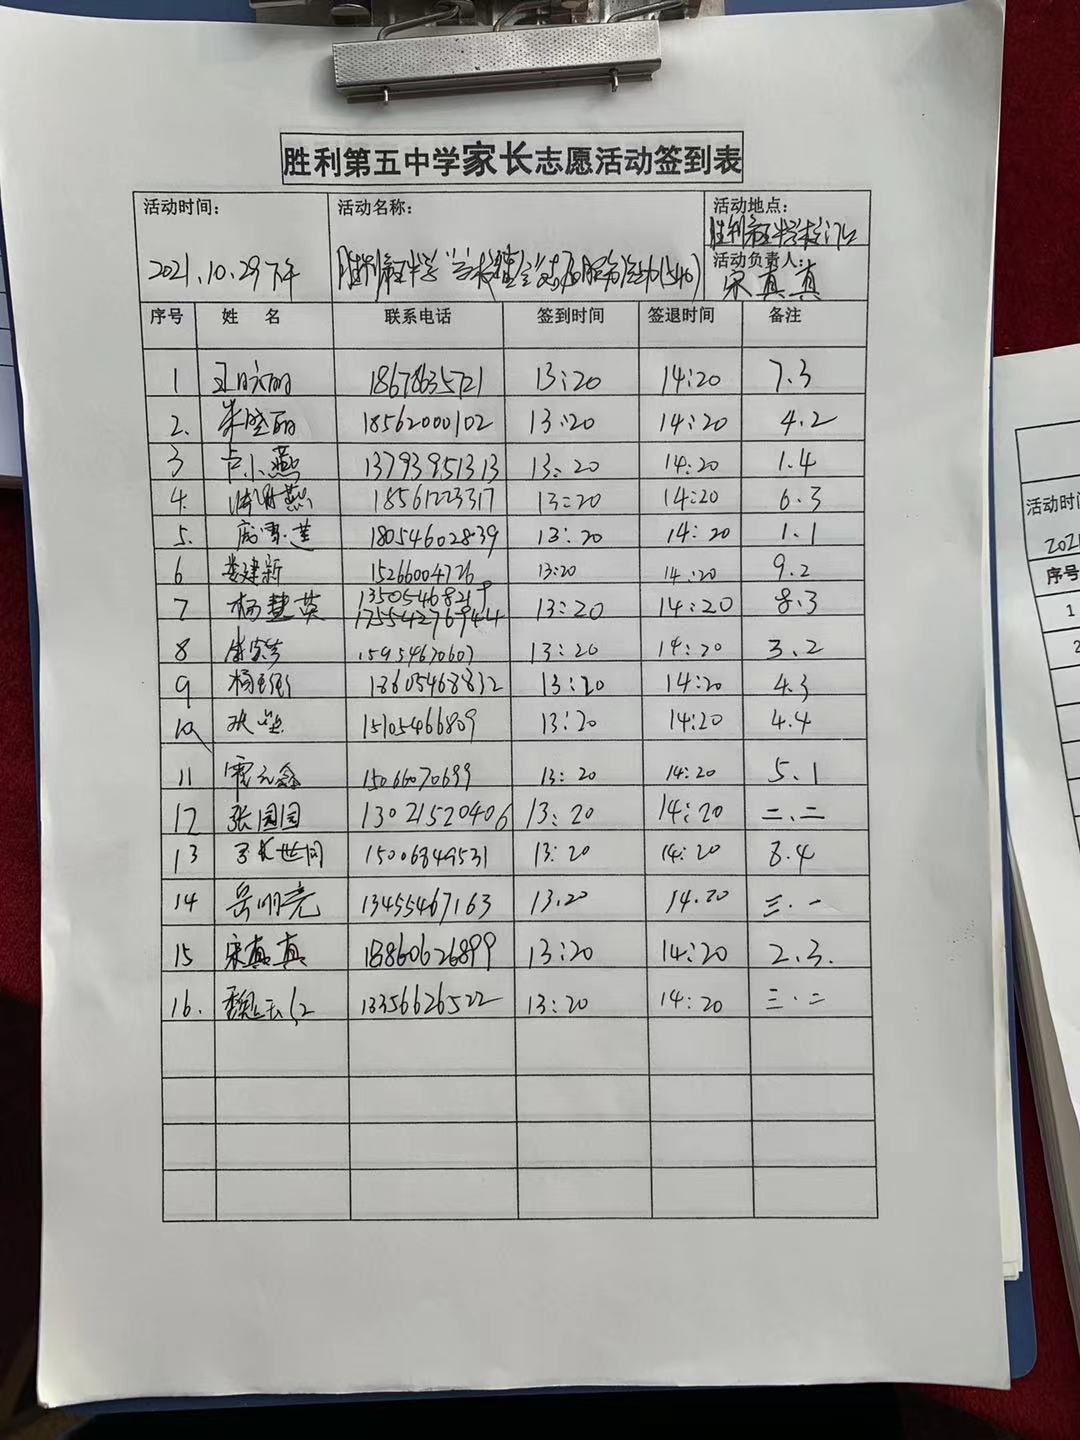 胜利第五中学家长志愿活动签到表
活动时间: 活动名称: 活动地点:
胜利第五中学校门口
2021.10.29下午 胜利第五中学 活动负责人:
宋真真
序号 姓 名 联系电话 签到时间 签退时间 备注
1 18678635721 13:20 14:20 7.3
2. 朱晓丽 18562000102 13:20 14:20 4.2
3 卢小燕 13793951313 13:20 14:20 1.4
4. 18561223317 13:20 14:20 6.3
5. 庞雪莲 18054602839 13:20 14:20 1.1
6 娄建新 15266004726 13:20 14:20 9.2
7 杨慧英 1350546821 17554276944 13:20 14:20 8.3
8 13:20 14:20 3.2
9 18605468832 13:20 14:20 4.3
10 15105466809 13:20 14:20 4.4
11 15066070699 13:20 14:20 5.1
12 张园园 13021520406 13:20 14:20 二、二
13 15006849531 13:20 14:20 8.4
14 岳明亮 13455467163 13.20 14.20 三.一
15 宋真真 18860626899 13:20 14:20 2.3.
16. 魏 13356626522 13:20 14:20 三.二
活动时间
2021
序号
1
2